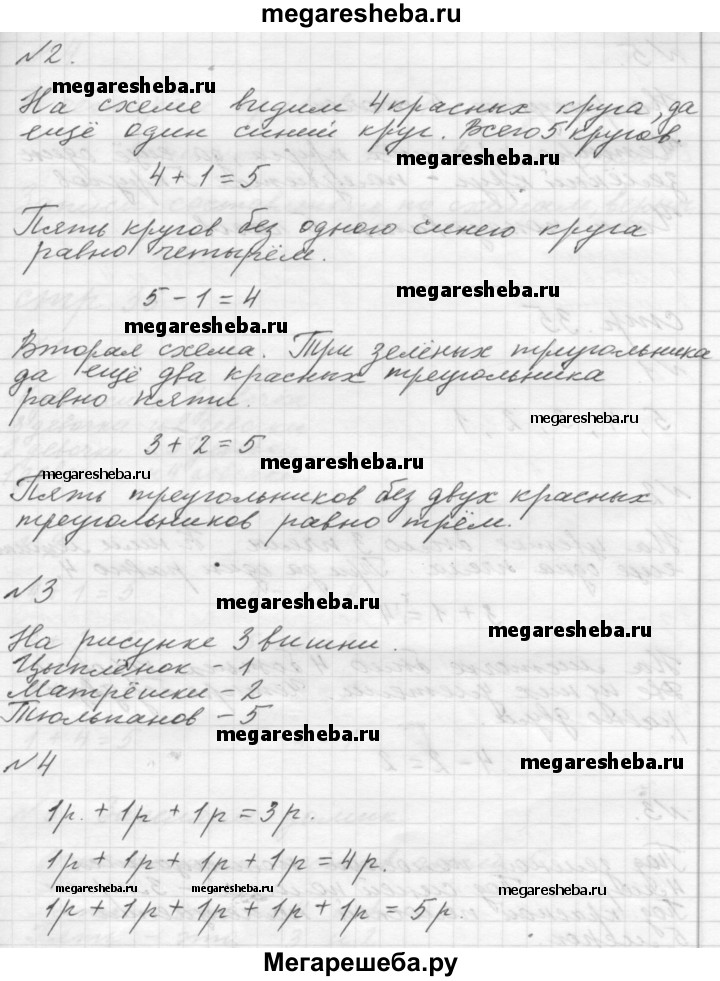 megaresheba.ru
№2.
megaresheba.ru
На схеме видим 4 красных круга, да
ещё один синий круг. Всего 5 кругов.
megaresheba.ru
4 + 1 = 5
Пять кругов без одного синего круга
равно четырём.
megaresheba.ru
5 - 1 = 4
megaresheba.ru
Вторая схема. Три зелёных триугольника
да ещё два красных треугольника
равно пяти.
megaresheba.ru
3 + 2 = 5
megaresheba.ru
megaresheba.ru
Пять треугольников без двух красных
треугольников равно трём.
№3
megaresheba.ru
megaresheba.ru
На рисунке 3 вишни.
Цыплёнок - 1
Матрёшки - 2
Тюльпанов - 5
megaresheba.ru
№4
megaresheba.ru
1р. + 1р + 1р = 3р.
1р + 1р + 1р + 1р = 4р.
megaresheba.ru
megaresheba.ru
megaresheba.ru
1р + 1р + 1р + 1р + 1р = 5р.
Мегарешеба.ру